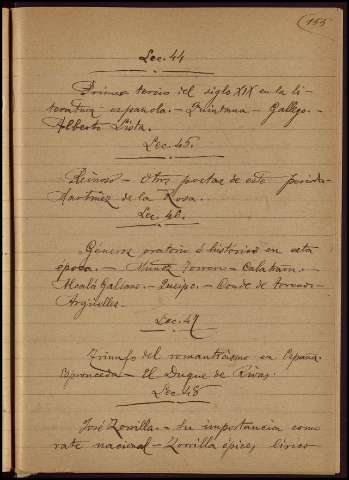 155
Lec. 44
Primer tercio del siglo XIX en la li-
teratura española. - Quintana - Gallego. -
Alberto Lista.
Lec. 45.
Reinoso - Otros poetas de este periodo
Martínez de la Rosa.
Lec. 46.
Géneros oratorio é histórico en esta
época. - Muñoz Torrero - Calatrava. -
Alcalá Galiano. - Queipo. - Conde de Toreno -
Argüelles.
Lec. 47
Triunfo del romanticismo en España.
Espronceda - El Duque de Rivas.
Lec. 48
José Zorrilla. - Su importancia como
vate nacional - Zorrilla épico, lírico